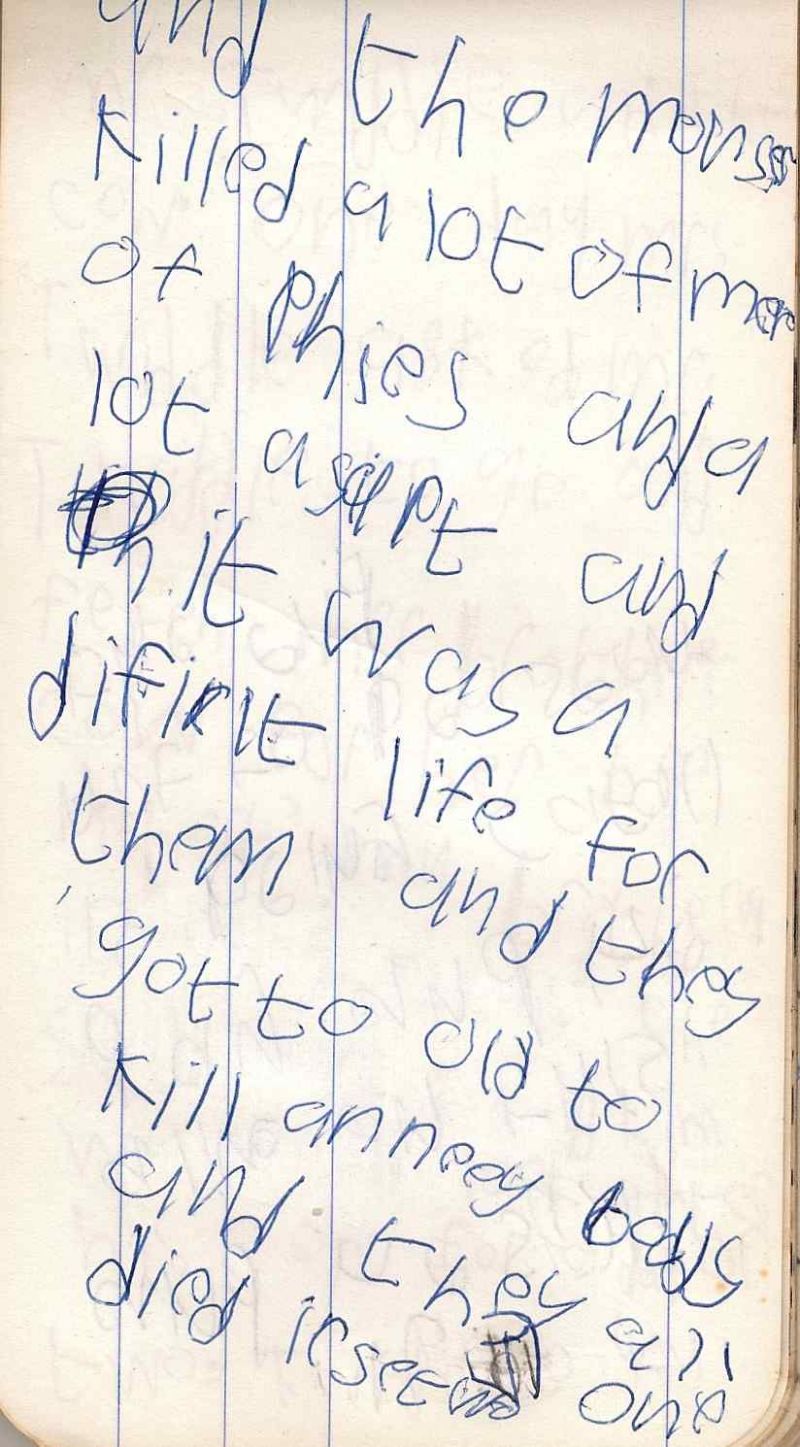 and the monss
killed a lot of men
of phies and a
lot asept and
it was a
dificlt life for
them and they
got to old to
kill anneey bodys
and they all
died one